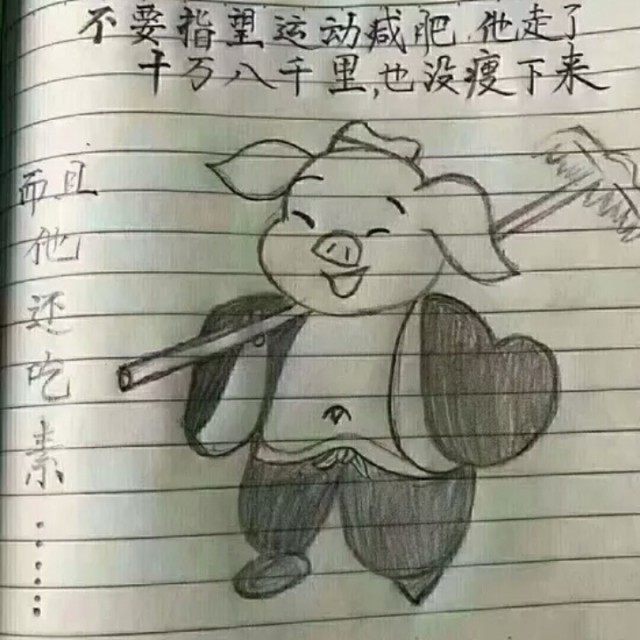 不要指望运动减肥,他走了
十万八千里,也没瘦下来
而且他还吃素......